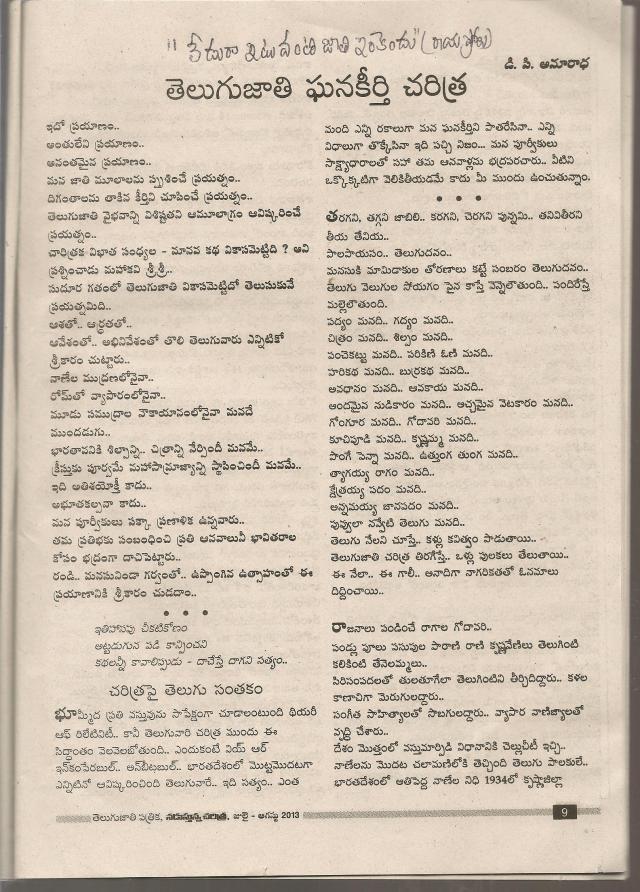 " లేదురా ఇటువంటి జాతి ఇంకెందు" (రాయప్రోలు)
డి. పి. అనూరాధ
తెలుగుజాతి ఘనకీర్తి చరిత్ర
ఇదో ప్రయాణం..
అంతులేని ప్రయాణం..
అనంతమైన ప్రయాణం..
మన జాతి మూలాలను స్పృశించే ప్రయత్నం..
దిగంతాలను తాకిన కీర్తిని చూపించే ప్రయత్నం..
తెలుగుజాతి వైభవాన్ని విశిష్టతని ఆమూలాగ్రం ఆవిష్కరించే
ప్రయత్నం..
చారిత్రక విభాత సంధ్యల - మానవ కథ వికాసమెట్టిది ? అని
ప్రశ్నించాడు మహాకవి శ్రీశ్రీ..
సుదూర గతంలో తెలుగుజాతి వికాసమెట్టిదో తెలుసుకునే
ప్రయత్నమిది..
ఆశతో.. ఆర్ద్రతతో..
ఆవేశంతో.. అభినివేశంతో తొలి తెలుగువారు ఎన్నిటికో
శ్రీకారం చుట్టారు..
నాణేల ముద్రణలోనైనా..
రోమ్‌తో వ్యాపారంలోనైనా..
మూడు సముద్రాల నౌకాయానంలోనైనా మనదే
ముందడుగు..
భారతావనికి శిల్పాన్ని.. చిత్రాన్ని నేర్పిందీ మనమే..
క్రీస్తుకు పూర్వమే మహాసామ్రాజ్యాన్ని స్థాపించిందీ మనమే..
ఇది అతిశయోక్తి కాదు..
అభూతకల్పనా కాదు..
మన పూర్వీకులు పక్కా ప్రణాళిక ఉన్నవారు..
తమ ప్రతిభకు సంబంధించి ప్రతి ఆనవాలునీ భావితరాల
కోసం భద్రంగా దాచిపెట్టారు..
రండి.. మనసునిండా గర్వంతో.. ఉప్పొంగిన ఉత్సాహంతో ఈ
ప్రయాణానికి శ్రీకారం చుడదాం..
• • •
ఇతిహాసపు చీకటికోణం
అట్టడుగున పడి కాన్పించని
కథలన్నీ కావాలిప్పుడు - దాచేస్తే దాగని సత్యం..
చరిత్రపై తెలుగు సంతకం
భూమ్మీద ప్రతి వస్తువును సాపేక్షంగా చూడాలంటుంది థియరీ
ఆఫ్ రిలేటివిటీ.. కానీ తెలుగువారి చరిత్ర ముందు ఈ
సిద్ధాంతం వెలవెలబోతుంది.. ఎందుకంటే వియ్ ఆర్
ఇన్‌కంపేరబుల్.. అన్‌బీటబుల్.. భారతదేశంలో మొట్టమొదటగా
ఎన్నిటినో ఆవిష్కరించింది తెలుగువారే.. ఇది సత్యం.. ఎంత
మంది ఎన్ని రకాలుగా మన ఘనకీర్తిని పాతరేసినా.. ఎన్ని
విధాలుగా తొక్కేసినా ఇది పచ్చి నిజం... మన పూర్వీకులు
సాక్ష్యాధారాలతో సహా తమ ఆనవాళ్లను భద్రపరచారు.. వీటిని
ఒక్కొక్కటిగా వెలికితీయడమే కాదు మీ ముందు ఉంచుతున్నాం.
• • •
తరగని, తగ్గని జాబిలి.. కరగని, చెరగని పున్నమి.. తనివితీరని
తీయ తేనియ..
పాలపాయసం.. తెలుగుదనం..
మనసుకి మామిడాకుల తోరణాలు కట్టే సంబరం తెలుగుదనం..
తేలుగు వెలుగుల సోయగం పైన కాస్తే వెన్నెలౌతుంది.. పందిరేస్తే
మల్లెలౌతుంది.
పద్యం మనది.. గద్యం మనది..
చిత్రం మనది.. శిల్పం మనది..
పంచెకట్టు మనది.. పరికిణి ఓణి మనది..
హరికథ మనది.. బుర్రకథ మనది..
అవధానం మనది.. ఆవకాయ మనది..
అందమైన నుడికారం మనది.. అచ్చమైన వెటకారం మనది..
గోంగూర మనది.. గోదావరి మనది..
కూచిపూడి మనది.. కృష్ణమ్మ మనది..
పొంగే పెన్నా మనది.. ఉత్తుంగ తుంగ మనది..
త్యాగయ్య రాగం మనది..
క్షేత్రయ్య పదం మనది..
అన్నమయ్య జానపదం మనది..
పువ్వులా నవ్వేటి తెలుగు మనది..
తెలుగు నేలని చూస్తే.. కళ్లు కవిత్వం పాడుతాయి..
తెలుగుజాతి చరిత్ర తిరగేస్తే.. ఒళ్లు పులకలు తేలుతాయి..
ఈ నేలా.. ఈ గాలీ.. అనాదిగా నాగరికతతో ఓనమాలు
దిద్దించాయి..
రాజనాలు పండించే రాగాల గోదావరి..
పండ్లు పూలు పసుపుల పారాణి రాణి కృష్ణవేణిలు తెలుగింటి
కలికింటి తేనెలమ్మలు..
సిరిసంపదలతో తులతూగేలా తెలుగింటిని తీర్చిదిద్దారు.. కళల
కాణాచిగా మెరుగులద్దారు..
సంగీత సాహిత్యాలతో సొబగులద్దారు.. వ్యాపార వాణిజ్యాలతో
వృద్ధి చేశారు..
దేశం మొత్తంలో వస్తుమార్పిడి విధానానికి చెల్లుచీటీ ఇచ్చి..
నాణేలను మొదట చలామణిలోకి తెచ్చింది తెలుగు పాలకులే..
భారతదేశంలో అతిపెద్ద నాణేల నిధి 1934లో కృష్ణాజిల్లా
తెలుగుజాతి పత్రిక, నడుస్తున్న చరిత్ర, జులై - ఆగస్టు 2013
9